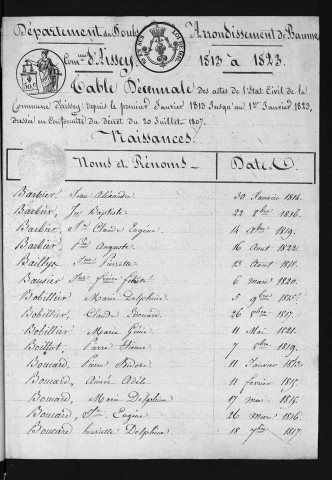 Département du Doubs Arrondissement de Baume
Comune d'Aissey. 1813 à 1823.
Table Décennale des actes de l'Etat Civil de la
Commune d'aissey, depuis le premier Janvier 1813 Jusqu'au 1er Janvier 1823,
dressée en Conformité du décret du 20 Juillet 1807.
Naissances.
Noms et Prénoms Date
Barbier, Jean Alexandre 30 Janvier 1814.
Barbier, Jn Baptiste 22 8bre 1816.
Barbier, Claude Eugène 14 1819.
Barbier, Auguste 16 Aout 1822.
Bailly, Pierrette 13 Aout 1818.
6 mars 1820.
Bobillier, Marie Delphine 5 9bre 1815.
Bobillier, Claude Edouard 26 8bre 1817.
Bobillier, Marie 11 Mai 1821.
Boillot, Pierre 7 8bre 1819.
Boucard, Pierre 11 Janvier 1813.
Boucard, Aimée Adèle 11 fevrier 1815.
Boucard, Marie Delphine 17 mai 1815.
Boucard, Jn Eugène 26 mars 1816.
Boucard henriette Delphine 18 7bre 1817.